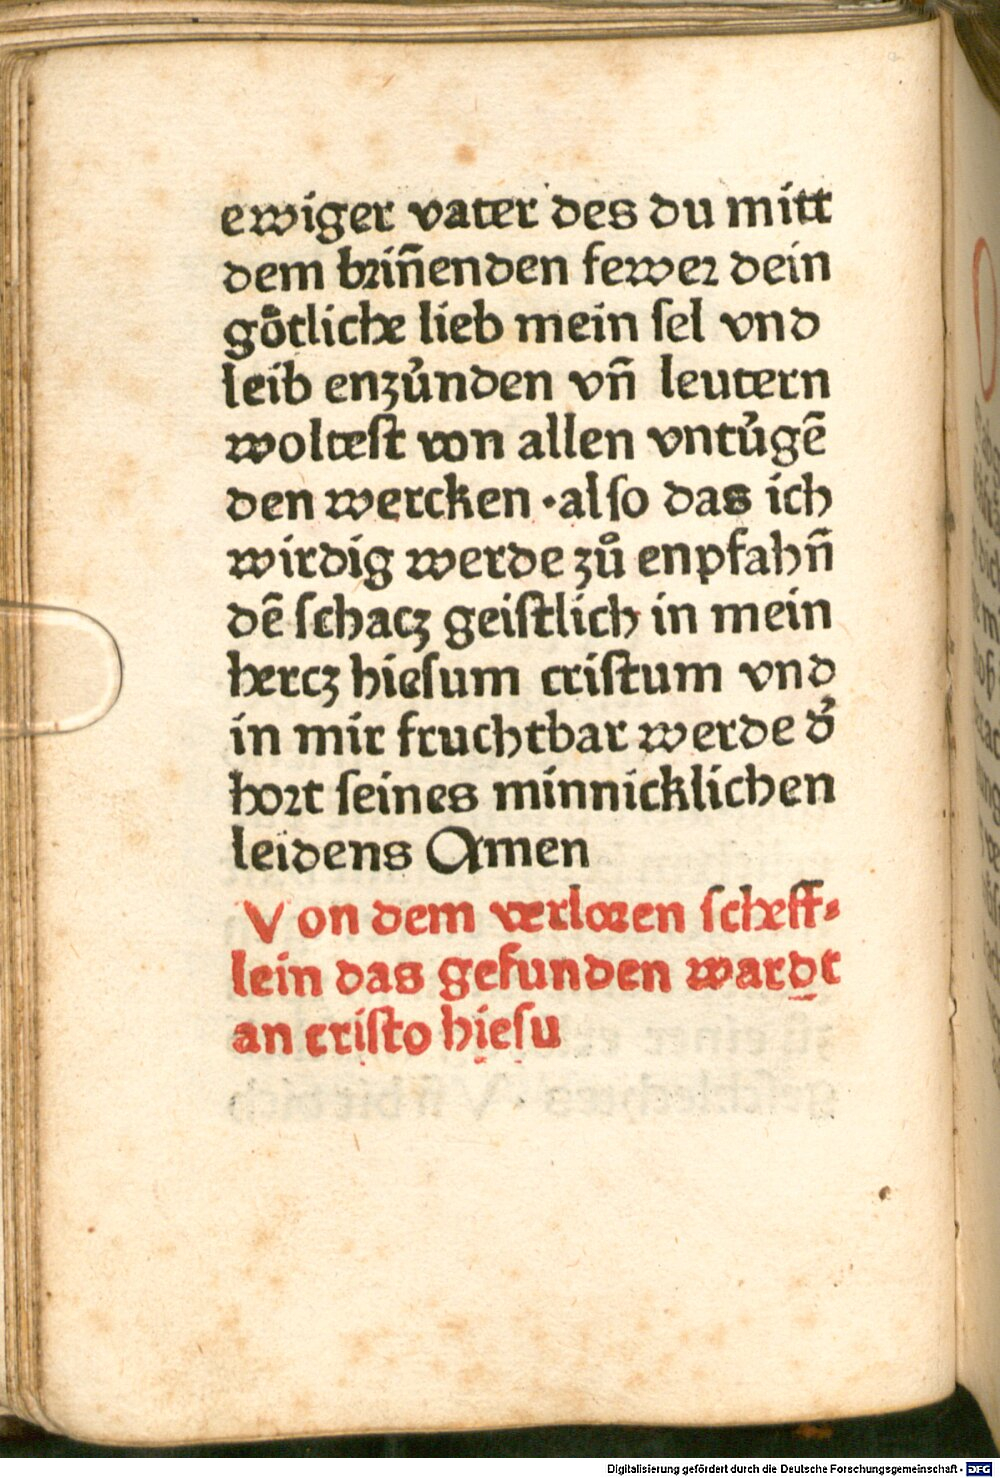 ewiger vater des du mitt
dem briñenden fewer dein
gǒtliche lieb mein sel vnd
leib enzůnden vñ leutern
woltest von allen vntůgẽ
den wercken ·also das ich
wirdig werde zů enpfahñ
dẽ schacz geistlich in mein
hercz hiesum cristum vnd
in mir fruchtbar werde d̉
hort seines minnicklichen
leidens Amen
Von dem verloren scheff⸗
lein das gefunden wardt
an cristo hiesu
Digitalisierung gefördert durch die Deutsche Forschungsgemeinschaft - DFG